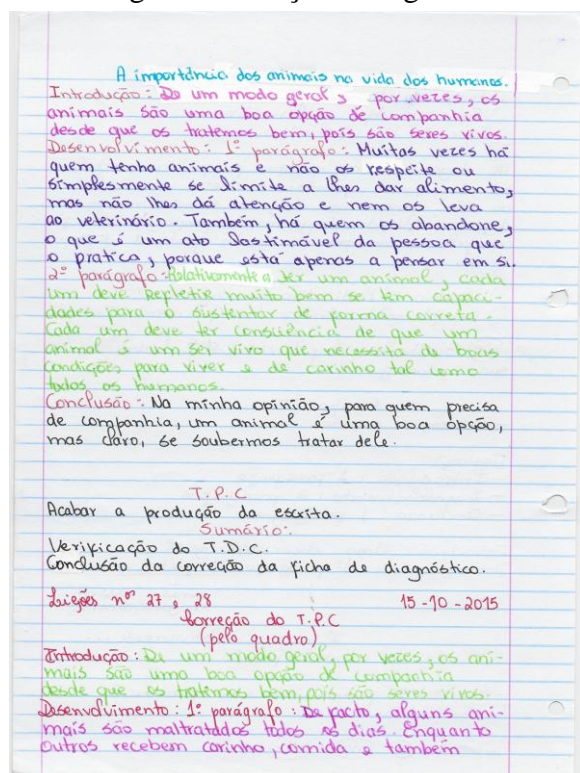 A importância dos animais na vida dos humanos.
Introdução: De um modo geral, por vezes, os
animais são uma boa opção de companhia
desde que os tratemos bem, pois são seres vivos.
Desenvolvimento: 1º parágrafo: Muitas vezes há
quem tenha animais e não os respeite ou
simplesmente se limite a lhes dar alimento,
mas não lhes dá atenção e nem os leva
ao veterinário. Também, há quem os abandone,
o que é um ato lastimável da pessoa que
o pratica, porque está apenas a pensar em si.
2º parágrafo: Relativamente a ter um animal, cada
um deve refletir muito bem se tem capaci-
dades para o sustentar de forma correta.
Cada um deve ter consciência de que um
animal é um ser vivo que necessita de boas
condições para viver e de carinho tal como
todos os humanos.
Conclusão: Na minha opinião, para quem precisa
de companhia, um animal é uma boa opção,
mas claro, se soubermos tratar dele.
T.P.C
Acabar a produção da escrita.
Sumário:
Verificação do T.D.C.
Conclusão da correção da ficha de diagnóstico.
Lições nºs 27 e 28 15-10-2015
Correção do T.P.C
(pelo quadro)
Introdução: De um modo geral, por vezes, os ani-
mais são uma boa opção de companhia
desde que os tratemos bem, pois são seres vivos.
Desenvolvimento: 1º parágrafo: De facto, alguns ani-
mais são maltratados todos os dias. Enquanto
outros recebem carinho, comida e também